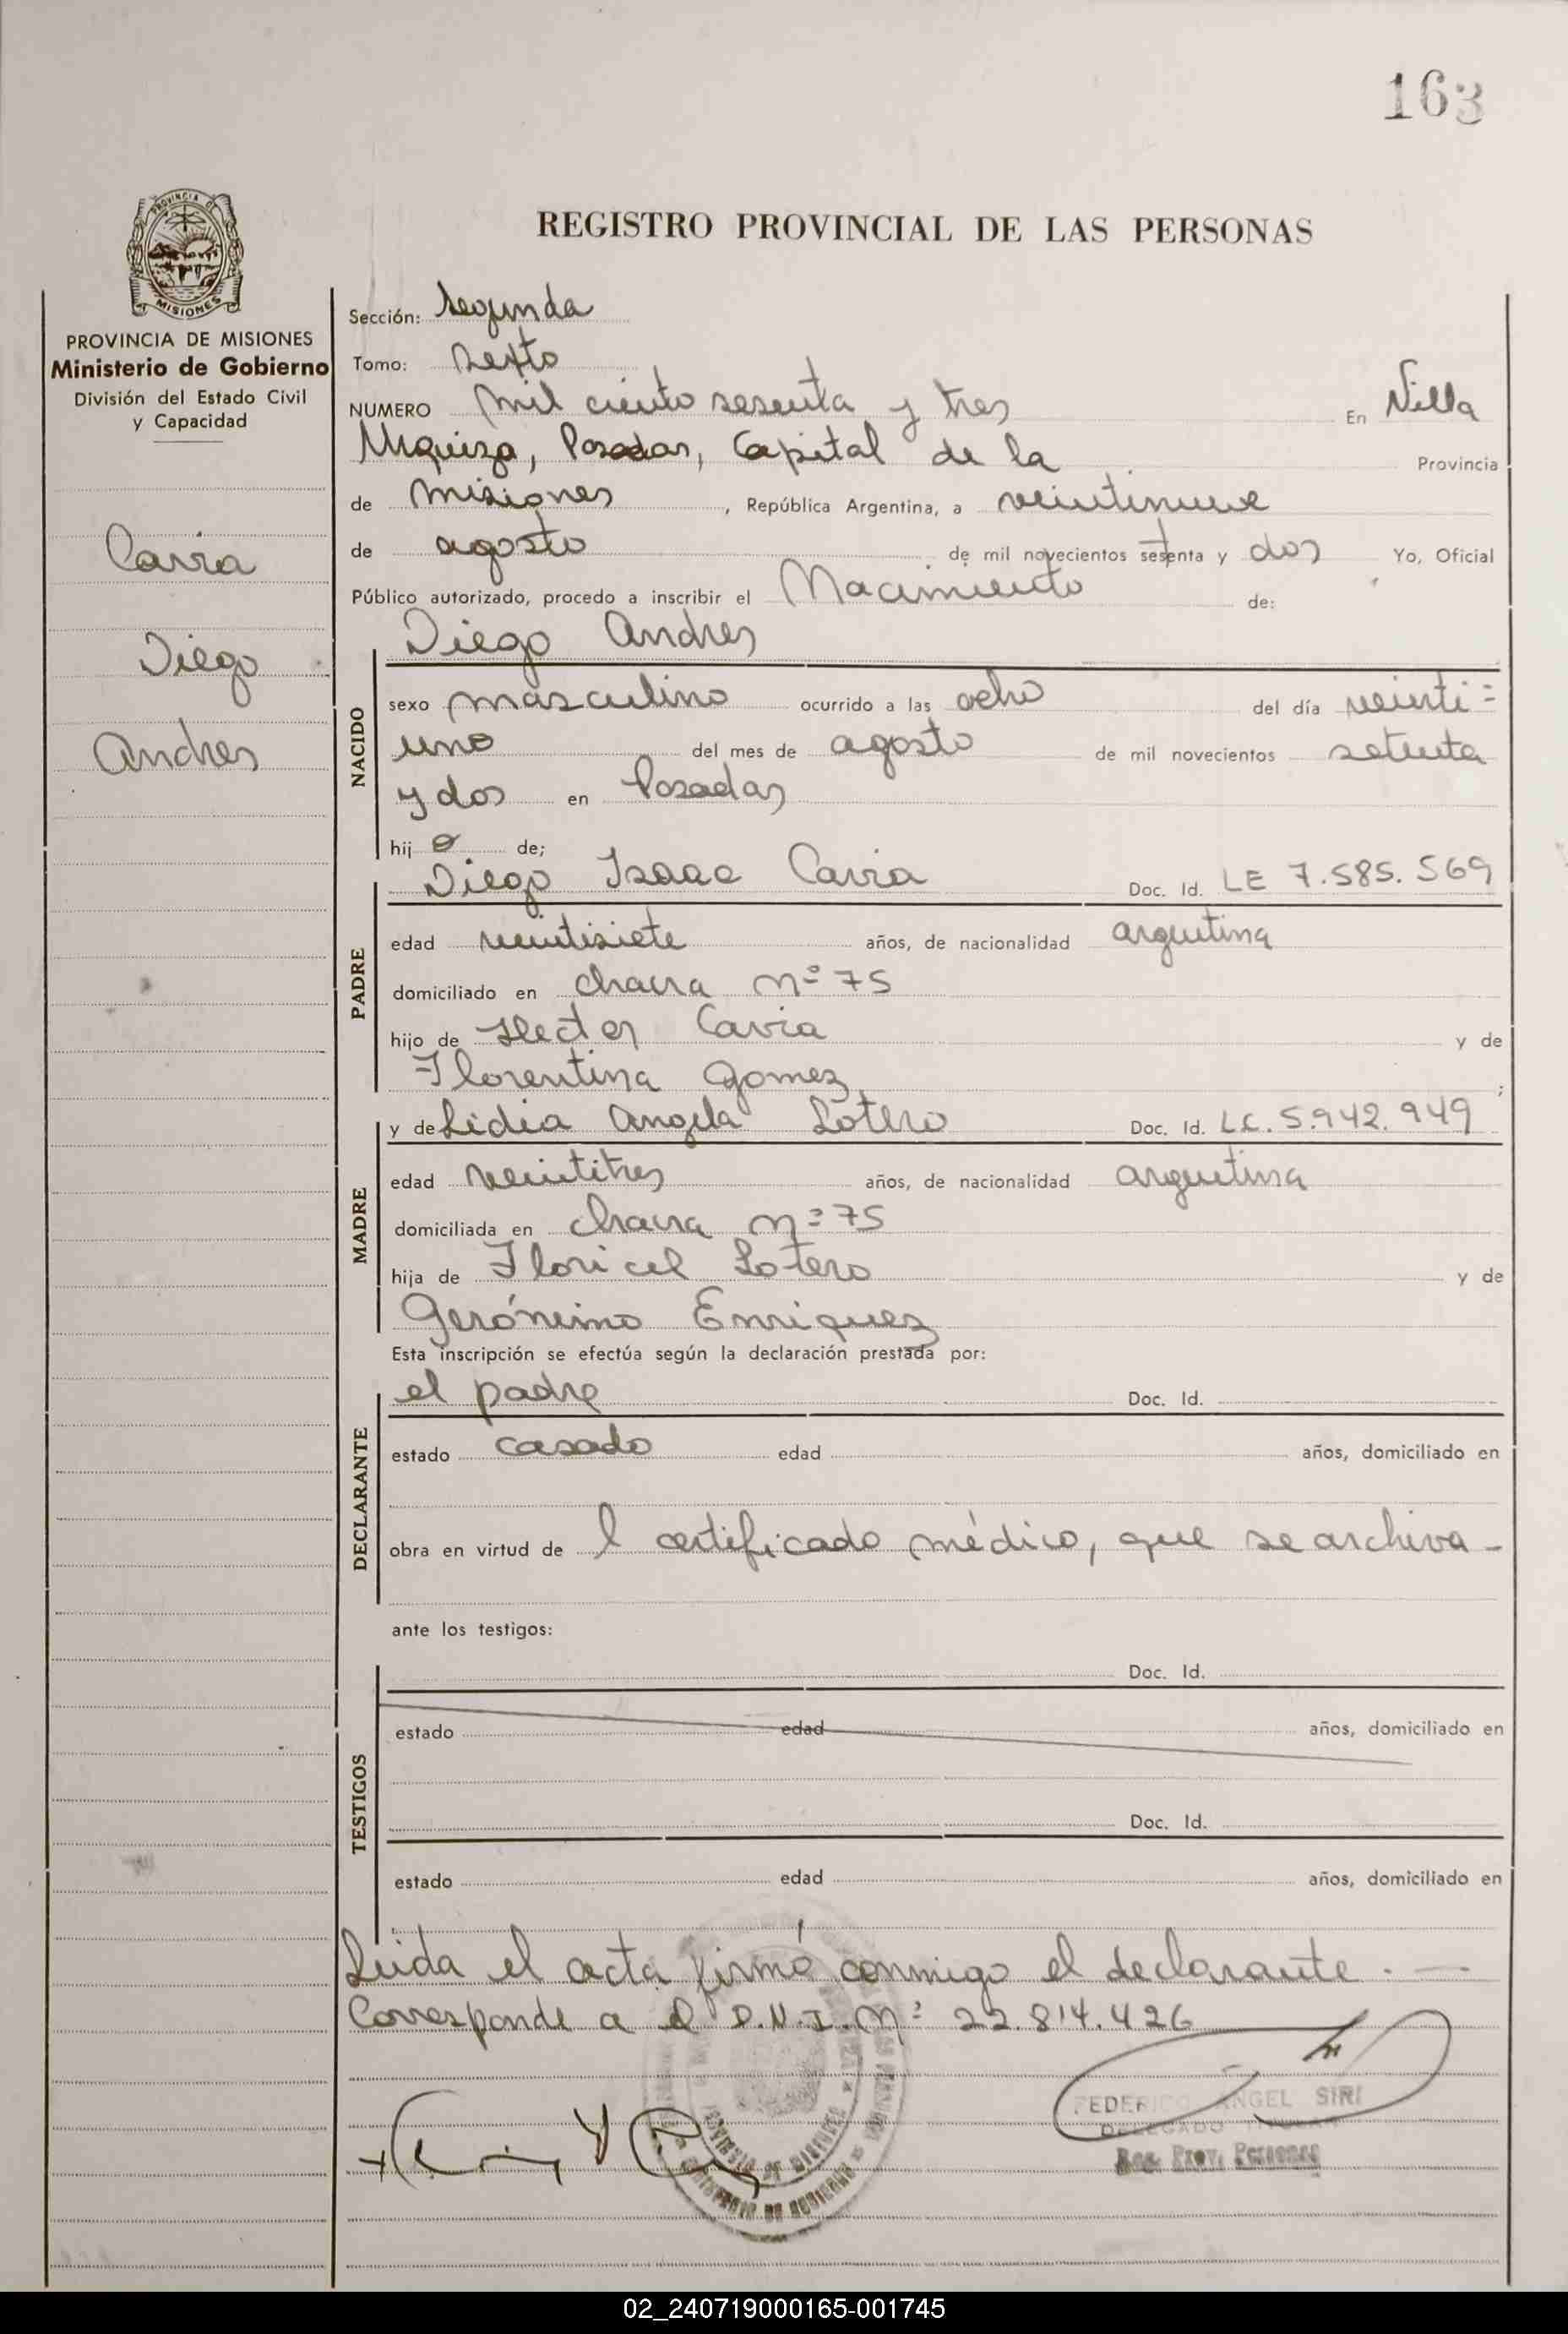 163
PROVINCIA DE MISIONES
REGISTRO PROVINCIAL DE LAS PERSONAS
PROVINCIA DE MISIONES
Ministerio de Gobierno
División del Estado Civil
y Capacidad
Cavia
Diego
Andres
Sección: Segunda
Tomo: sexto
NUMERO mil ciento sesenta y tres En Villa
Urquiza, Posadas, Capital de la Provincia
de misiones, República Argentina, a veintinueve
de agosto de mil novecientos setenta y dos Yo, Oficial
Público autorizado, procedo a inscribir el Nacimiento de:
Diego Andres
NACIDO
sexo masculino ocurrido a las ocho del día veinti=
uno del mes de agosto de mil novecientos setenta
y dos en Posadas
hijo de;
Diego Isaac Cavia Doc. Id. LE 7.585.569
PADRE
edad veintisiete años, de nacionalidad argentina
domiciliado en chacra nº 75
hijo de Hector Cavia y de
Florentina Gomez;
y de Lidia Angela Sotero Doc. Id. L.C. 5.942.949
MADRE
edad veintitres años, de nacionalidad argentina
domiciliada en chacra nº 75
hija de Floricel Sotero y de
Gerónimo Enriquez
Esta inscripción se efectúa según la declaración prestada por:
el padre Doc. Id.
DECLARANTE
estado casado edad años, domiciliado en
obra en virtud de l certificado médico, que se archiva -
ante los testigos:
Doc. Id.
TESTIGOS
estado edad años, domiciliado en
Doc. Id.
estado edad años, domiciliado en
Leida el acta firmó conmigo el declarante. —
Corresponde a D.N.I. Nº 22.814.426
FEDERICO ANGEL SIRI
DELEGADO TITULAR
Reg. Prov. Personas
PROVINCIA DE MISIONES
MINISTERIO DE GOBIERNO
02_240719000165-001745